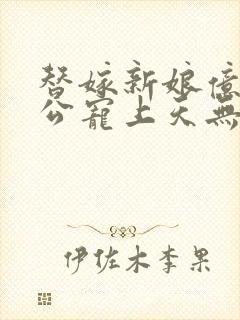 替嫁新娘億
公寵上天無
伊佐木李果